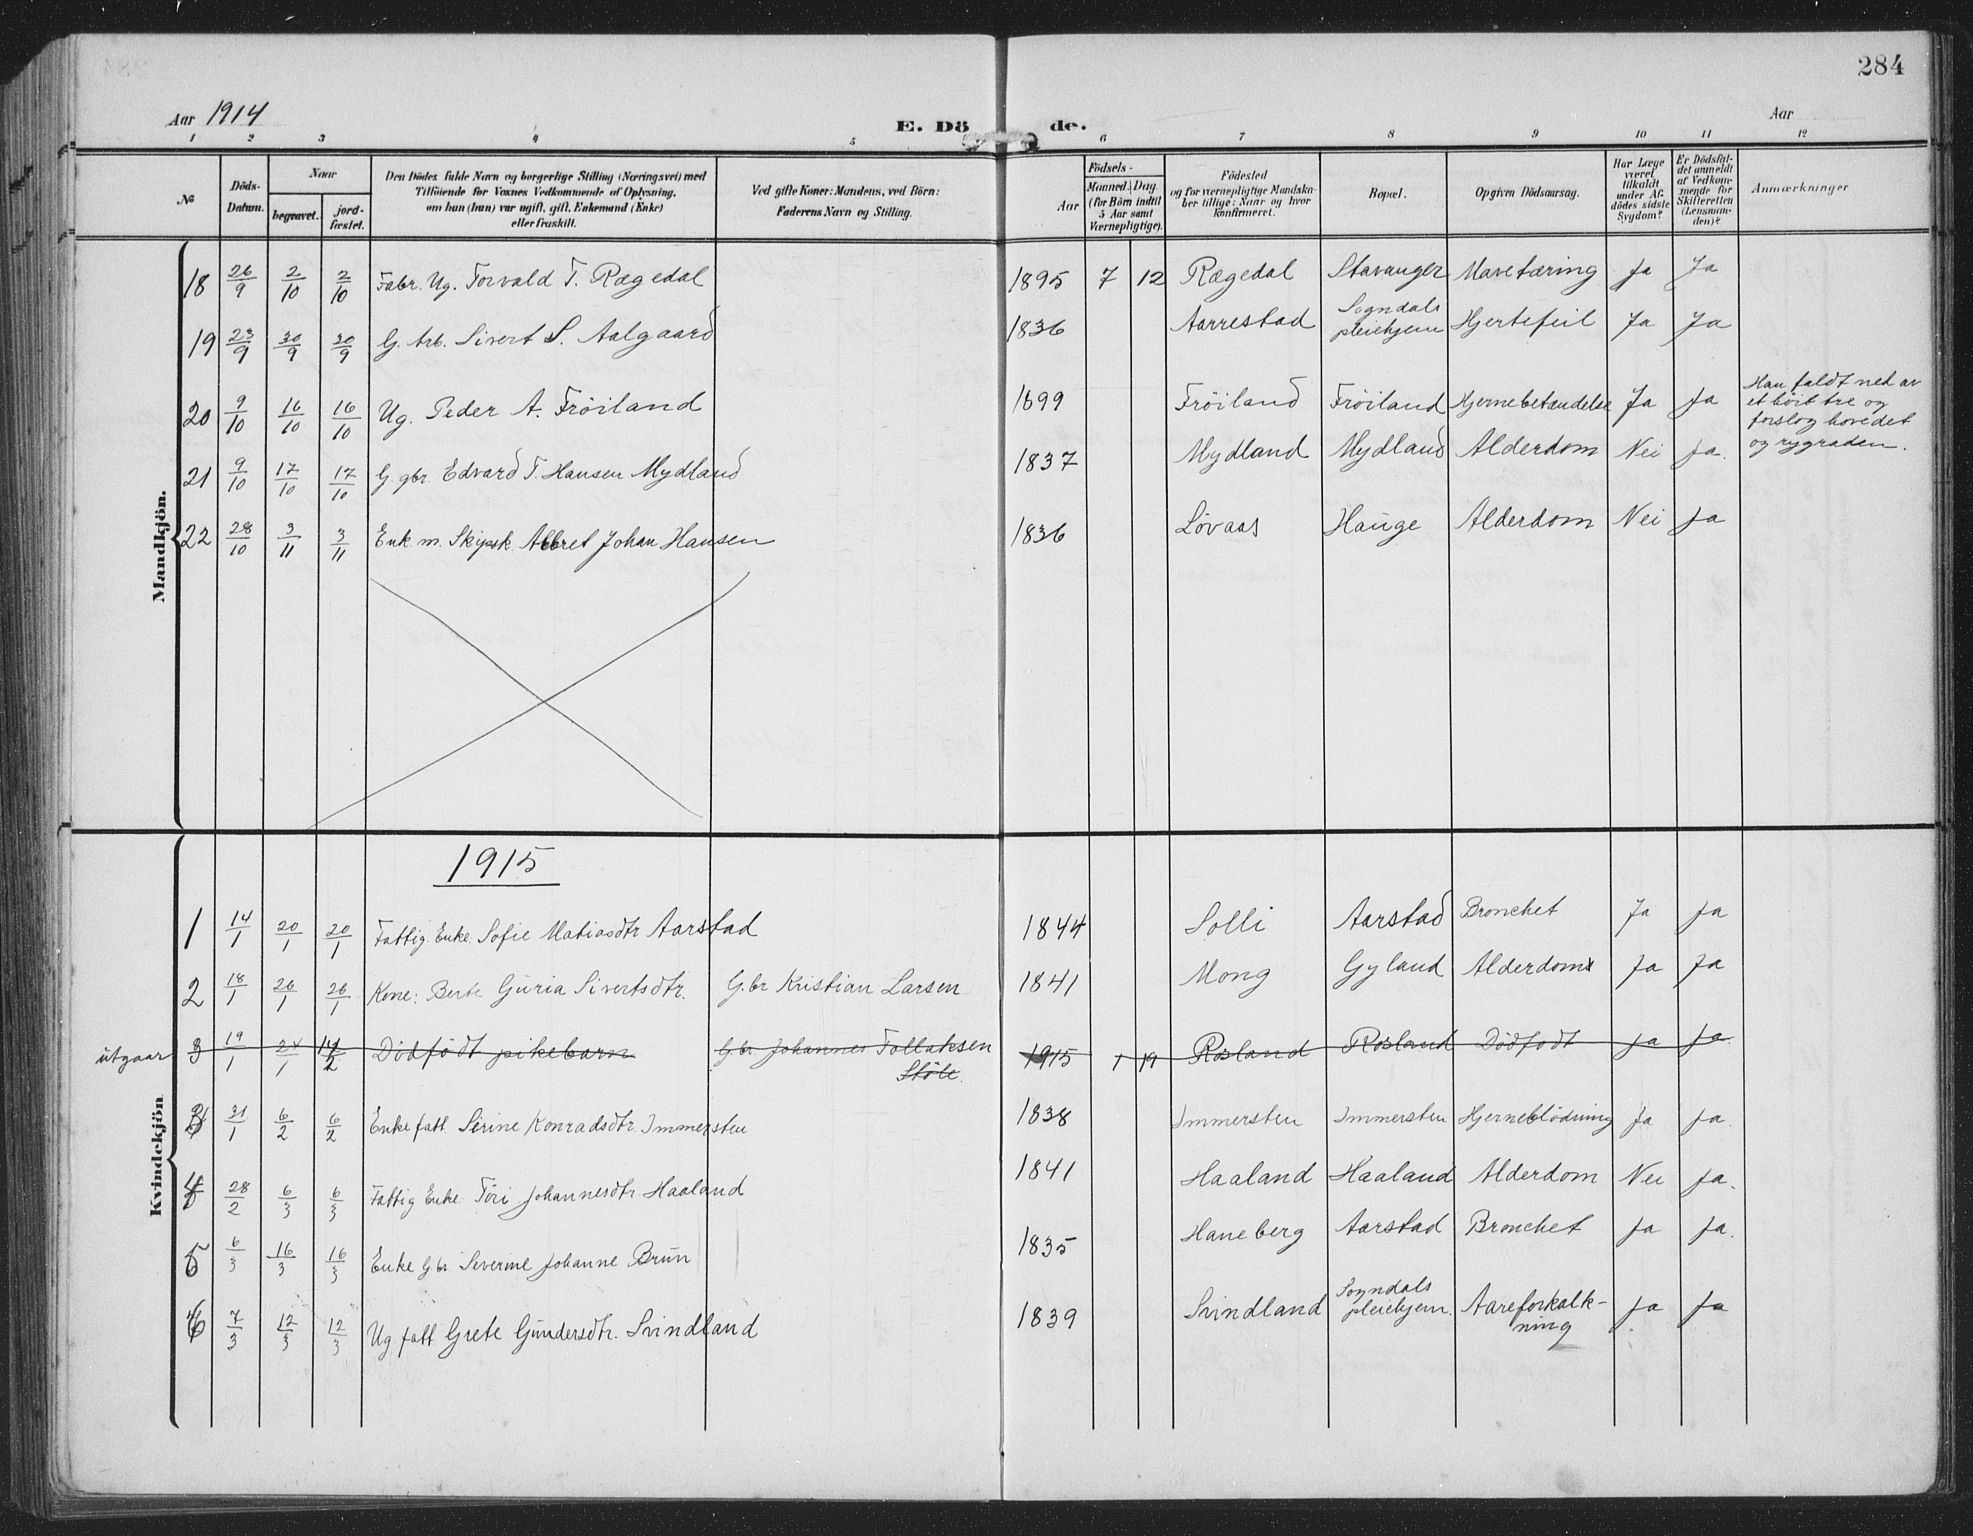 284
Aar 1914
E. Dö de.
Aar
1 2 3 4 5 6 7 8 9 10 11 12
№
Döds-Datum.
Naar
begravet.
jord-fæstet.
Den Dödes fulde Navn og borgerlige Stilling (Næringsvei) med
Tilföiende for Voxnes Vedkommende af Oplysning,
om han (hun) var ugift, gift, Enkemand (Enke)
eller fraskilt.
Ved gifte Koner: Mandens, ved Börn:
Faderens Navn og Stilling.
Födsels-
Aar
Maaned. Dag.
(for Börn indtil
5 Aar samt
Værnepligtige).
Födested
og for værnepligtige Mandska-
ber tillige: Naar og hvor
konfirmeret.
Bopæl.
Opgiven Dödsaarsag.
Har Læge
været
tilkaldt
under Af-
dödes sidste
Sygdom?
Er Dödsfal-
det anmeldt
af Vedkom-
mende for
Skifteretten
(Lensman-
den)?
Anmærkninger
Mandkjön.
18 26/9 2/10 2/10 Fabr. Ug. Torvald T. Rægedal 1895 7 12 Rægedal Stavanger Mavetæring Ja Ja
19 23/9 30/9 30/9 G. Arb. Sivert S. Aalgaard 1836 Aarrestad Sogndals pleiehjem Hjertefeil Ja Ja
20 9/10 16/10 16/10 Ug. Peder A. Fröiland 1899 Fröiland Fröiland Hjernebetændelse Ja Ja
Han faldt ned av
et höit tre og
forslog hovedet
og rygraden.
21 9/10 17/10 17/10 G. gbr. Edvard T. Hansen Mydland 1837 Mydland Mydland Alderdom Nei Ja.
22 28/10 3/11 3/11 Enk. m. Skipsk. Albret Johan Hansen 1836 Løvaas Hauge Alderdom Nei Ja
1915
Kvindekjön
1 14/1 20/1 20/1 Fattig Enke. Sofie Matiasdtr Aarstad 1844 Solli Aarstad Bronchet Ja Ja
2 18/1 26/1 26/1 Kone: Berte Guria Sivertsdtr. G.br Kristian Larsen 1841 Mong Gyland Alderdom Ja Ja
utgaar 3 19/1 24/1 14/2 Dödfödt pikebarn G.br Johannes Tollaksen 1915 1 19 Rosland Rosland Dödfodt Ja Ja.
Stöle.
3 31/1 6/2 6/2 Enke fatt. Serine Konradsdtr. Immersten 1838 Immersten Immersten Hjerneblödning Ja Ja.
4 28/2 6/3 6/3 Fattig Enke. Töri Johannesdtr Haaland 1841 Haaland Haaland Alderdom Nei Ja.
5 6/3 16/3 16/3 Enke G.br Severine Johanne Brun 1835 Haneberg Aarstad Bronchet Ja Ja.
6 7/3 12/3 12/3 Ug fatt Grete Gundersdtr. Svindland 1839 Svindland Sogndals pleiehjem. Aareforkalk-
ning Ja Ja